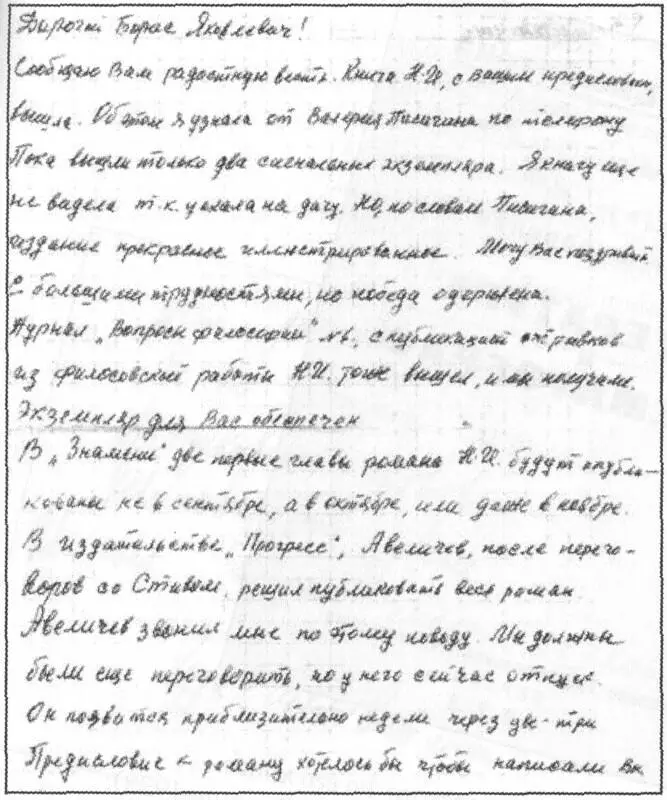 Дорогой Борис Яковлевич!
Сообщаю Вам радостную весть. Книга Н.И, с Вашим предисловием,
вышла. Об этом я узнала от Валерия Писигина по телефону
Пока вышли только два сигнальных экземпляра. Я книгу еще
не видела т.к. уехала на дачу. Но, по словам Писигина,
издание прекрасное иллюстрированное. Могу Вас поздравить.
С большими трудностями, но победа одержена.
Журнал „Вопросы философии" №6, с публикацией отрывков
из философской работы Н.И. тоже вышел, и мы получили.
Экземпляр для Вас обеспечен
В „Знамени" две первые главы романа Н.И. будут опубли-
кованы не в сентябре, а в октябре, или даже в ноябре.
В издательстве „Прогресс", Авеличев, после перего-
воров со Стивом, решил публиковать весь роман.
Авеличев звонил мне по этому поводу. Мы должны
были еще переговорить, но у него сейчас отпуск.
Он появится приблизительно недели через две-три
Предисловие к роману хотелось бы чтобы написали Вы